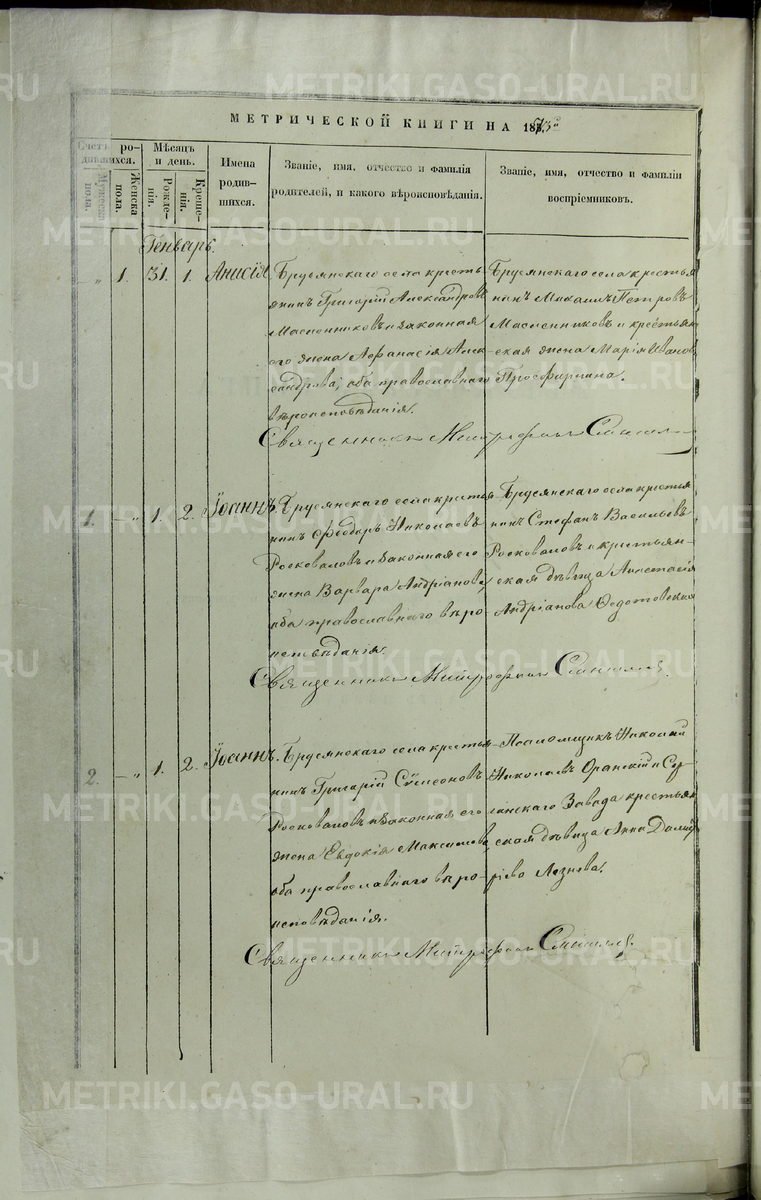 METRIKI.GASO-URAL.RU
МЕТРИЧЕСКОЙ КНИГИ НА 18
Счетъ родившихся.
Мужеска пола.
Женска пола.
Мѣсяцъ и день.
Рожденія.
Крещенія.
Имена родившихся.
Званіе, имя, отчество и фамилія родителей, и какого вѣроисповѣданія.
Званіе, имя, отчество и фамилія воспріемниковъ.
Генварь.
„ 1. 31. 1. Анисія
Брусянскаго села кресть-
янинъ Григорій Александровъ
Масленниковъ и законная
его жена Афанасія Алек-
сандрова; оба православнаго
вѣроисповѣданія.
Брусянскаго села крестья
нинъ Михаилъ Петровъ
Масленниковъ и крестьян
ская жена Марія Иванов
Просфирнина.
Священникъ Митрофанъ
1. „ 1. 2. Іоаннъ.
Брусянскаго села крестья
нинъ Феодоръ Николаевъ
Росковаловъ и законная его
жена Варвара Андріанова;
оба православнаго вѣро-
исповѣданія.
Брусянскаго села крестья
нинъ Стефанъ Васильевъ
Росковаловъ и крестьян-
ская дѣвица Анастасія
Андріанова Федотовская
Священникъ Митрофанъ
2. „ 1. 2. Іоаннъ.
Брусянскаго села крестья
нинъ Григорій Сѵмеоновъ
Росковаловъ и законная его
жена Евдокія Максимова
оба православнаго вѣро-
исповѣданія.
Псаломщикъ Николай
Николаевъ Оранскій и
Завода крестьян
ская дѣвица Анна
Священникъ Митрофанъ